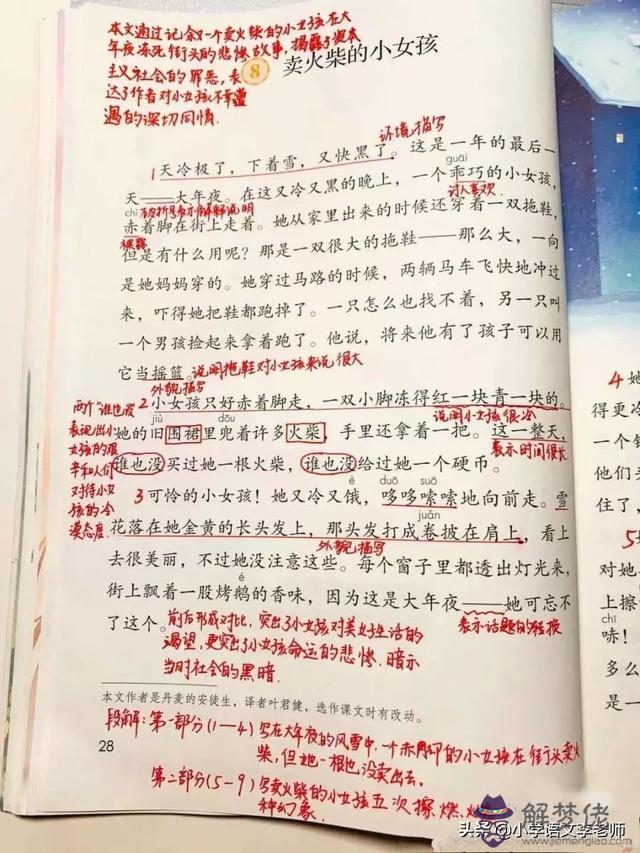 本文通过记叙一个卖火柴的小女孩在大
年夜冻死街头的悲惨故事,揭露了资本
主义社会的罪恶,表
达了作者对小女孩不幸遭
遇的深切同情.
8 卖火柴的小女孩
环境描写
1天冷极了,下着雪,又快黑了。这是一年的最后
guāi
一天——大年夜。在这又冷又黑的晚上,一个乖巧的小女孩,
讨人喜欢
chì
破折号表示解释说明
赤着脚在街上走着。她从家里出来的时候还穿着一双拖鞋,
裸露
但是有什么用呢?那是一双很大的拖鞋——那么大,一向
是她妈妈穿的。她穿过马路的时候,两辆马车飞快地冲过
来,吓得她把鞋都跑掉了。一只怎么也找不着,另一只叫
一个男孩捡起来拿着跑了。他说,将来他有了孩子可以用
它当摇篮。
说明拖鞋对小女孩来说很大
外貌描写
2小女孩只好赤着脚走,一双小脚冻得红一块青一块的。
说明小女孩很冷
jiù dōu
她的旧围裙里兜着许多火柴,手里还拿着一把。这一整天,
表示时间很长
谁也没买过她一根火柴,谁也没给过她一个硬币。
两个“谁也没”
表现出小
女孩的艰
辛和人们
对待小女
孩的冷
漠态度.
è duō suō
3可怜的小女孩!她又冷又饿,哆哆嗦嗦地向前走。雪
juǎn
花落在她金黄的长头发上,那头发打成卷披在肩上,看上
外貌描写
去很美丽,不过她没注意这些。每个窗子里都透出灯光来,
é
街上飘着一股烤鹅的香味,因为这是大年夜——她可忘不
表示话题的转换
了这个。
前后形成对比,突出了小女孩对美好生活的
渴望,更突出了小女孩命运的悲惨,暗示
当时社会的黑暗.
本文作者是丹麦的安徒生,译者叶君健,选作课文时有改动。
段解:第一部分(1—4)写在大年夜的风雪中,一个赤脚的小女孩在街头卖火
柴,但她一根也没卖出去.
28
第二部分(5-9)写卖火柴的小女孩五次擦燃火
种幻象.
4她
得更冷
一个钱
他们头
住了,
5她
为她
上擦
chī
哧!
多么
是一
头条@小学语文李老师
解梦佬
www.jiemenglao.com